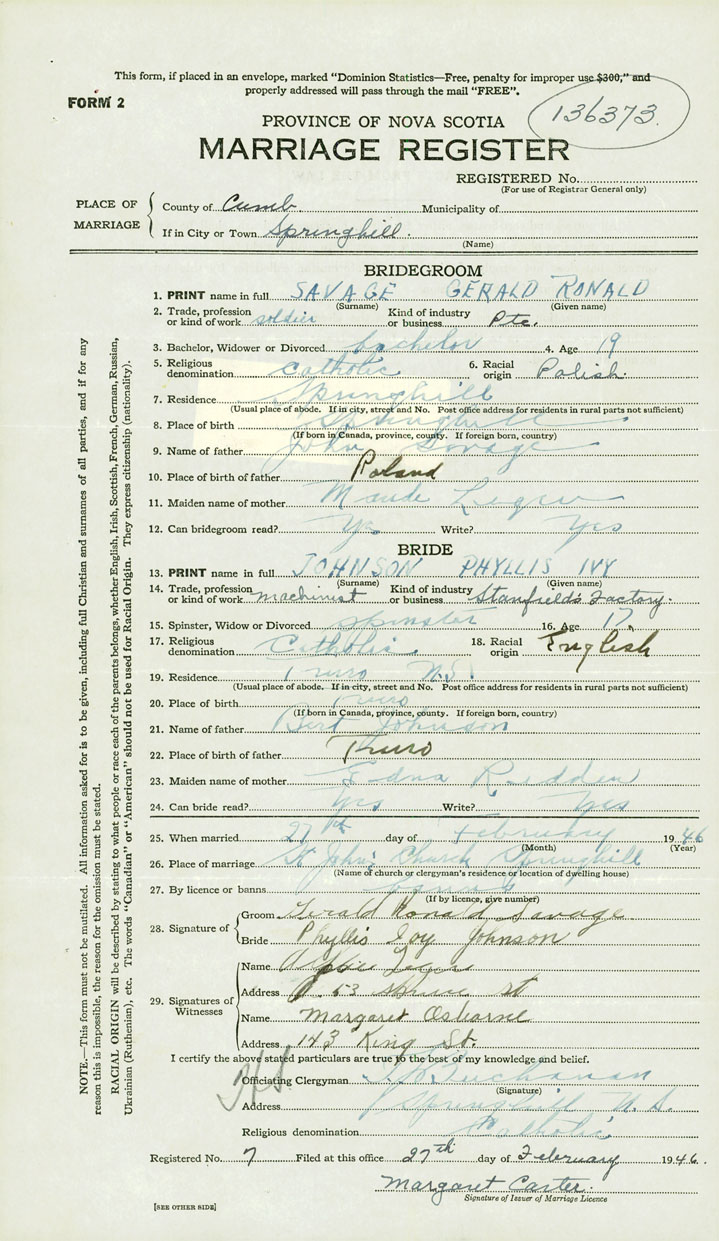 This form, if placed in an envelope, marked “Dominion Statistics—Free, penalty for improper use $300,” and
properly addressed will pass through the mail “FREE”.
FORM 2
136373.
PROVINCE OF NOVA SCOTIA
MARRIAGE REGISTER
REGISTERED No.
(For use of Registrar General only)
PLACE OF MARRIAGE
County of Cumb Municipality of
If in City or Town Springhill.
(Name)
BRIDEGROOM
1. PRINT name in full SAVAGE GERALD RONALD
(Surname) (Given name)
2. Trade, profession or kind of work soldier Kind of industry or business Pte.
3. Bachelor, Widower or Divorced bachelor 4. Age 19
5. Religious denomination Catholic 6. Racial origin Polish
7. Residence Springhill
(Usual place of abode. If in city, street and No. Post office address for residents in rural parts not sufficient)
8. Place of birth Springhill
(If born in Canada, province, county. If foreign born, country)
9. Name of father John Savage
10. Place of birth of father Poland
11. Maiden name of mother Maude
12. Can bridegroom read? Yes Write? Yes
BRIDE
13. PRINT name in full JOHNSON PHYLLIS IVY
(Surname) (Given name)
14. Trade, profession or kind of work machinist Kind of industry or business Stanfield's Factory.
15. Spinster, Widow or Divorced spinster 16. Age 17
17. Religious denomination Catholic 18. Racial origin English
19. Residence Truro N.S.
(Usual place of abode. If in city, street and No. Post office address for residents in rural parts not sufficient)
20. Place of birth Truro
(If born in Canada, province, county. If foreign born, country)
21. Name of father Bert Johnson
22. Place of birth of father Truro
23. Maiden name of mother Edna Redden
24. Can bride read? Yes Write? Yes
25. When married 27th day of February 1946
(Month) (Year)
26. Place of marriage St John's Church Springhill
(Name of church or clergyman's residence or location of dwelling house)
27. By licence or banns banns
(If by licence, give number)
28. Signature of
Groom Gerald Ronald Savage
Bride Phyllis Ivy Johnson
29. Signatures of Witnesses
Name
Address 53 Spruce St
Name Margaret Osborne
Address 143 King St.
I certify the above stated particulars are true to the best of my knowledge and belief.
Officiating Clergyman Buchanan
(Signature)
Address Springhill N.S.
Religious denomination Catholic
Registered No. 7 Filed at this office 27th day of February 1946.
Margaret Carter.
Signature of Issuer of Marriage Licence
[SEE OTHER SIDE]
NOTE.—This form must not be mutilated. All information asked for is to be given, including full Christian and surnames of all parties, and if for any
reason this is impossible, the reason for the omission must be stated.
RACIAL ORIGIN will be described by stating to what people or race each of the parents belongs, whether English, Irish, Scottish, French, German, Russian,
Ukrainian (Ruthenian), etc. The words “Canadian” or “American” should not be used for Racial Origin. They express citizenship (nationality).